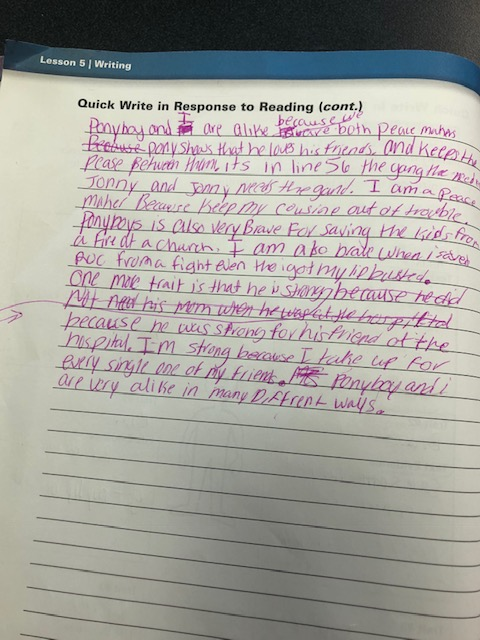 Lesson 5 | Writing
Quick Write in Response to Reading (cont.)
I because we
Ponyboy and are alike both peace makers
Because pony shows that he loves his friends, and keeps the
pease Between them, its in line 56 the gang
Jonny and Jonny needs the gand. I am a peace
maker Because keep my cousins out of trouble.
Ponyboys is also very Brave For saving the kids from
a fire at a church. I am also brave when i saved
from a fight even the i got my lip busted.
One more trait is that he is strong because he did
Not need his mom when he was at the hospital
because he was strong for his friend at the
hospital. I'm strong because I take up for
every single one of my friends. Ponyboy and i
are very alike in many Diffrent walls.